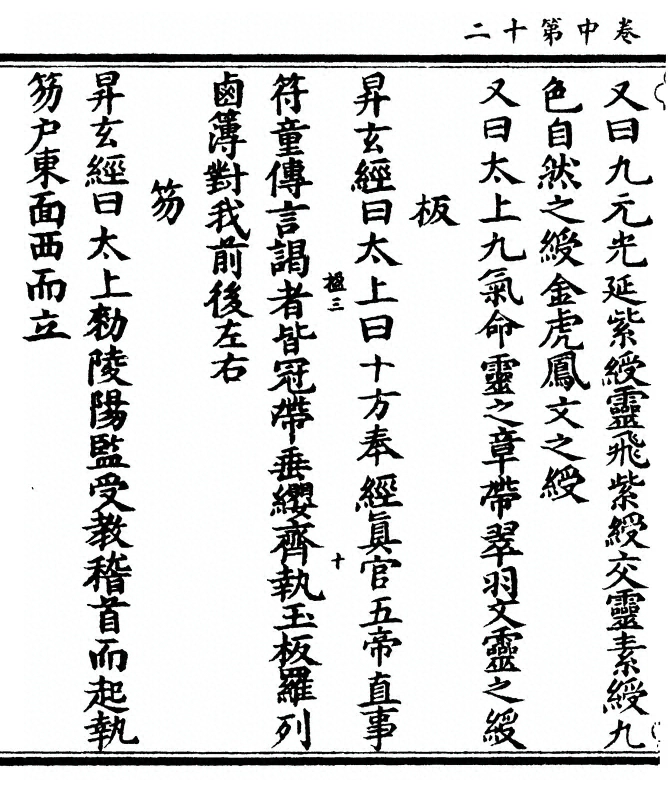 卷中第十二
又曰九元光延紫綬靈飛紫綬交靈素綬九
色自然之綬金虎鳳文之綬
又曰太上九氣命靈之章帶翠羽文靈之綬
板
昇玄經曰太上曰十方奉經眞官五帝直事
楹三
十
符童傳言謁者皆冠帶垂纓齊執玉板羅列
鹵簿對我前後左右
笏
昇玄經曰太上勑陵陽監受教稽首而起執
笏戶東面西而立